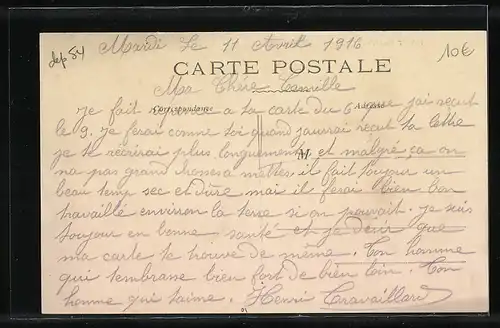 dep 54
Mardi le 11 Avril 1916
10€
CARTE POSTALE
Ma Chère Camille
Correspondance
Adresse
Je fait réponce a ta carte du 6 que jai reçut
le 9. Je ferai comme toi quand jaurai reçut ta lettre
je te récrirai plus longuement et malgré ça on
M
na pas grand choses a mettres il fait toujour un
beau temp sec et dûre mai il ferai bien bon
travaillé environ la terre si on pouvait. je suis
toujour en bonne santé et je désir que
ma carte te trouve de même. Ton homme
qui tembrasse bien fort de bien loin. Ton
homme qui taime. Henri Travaillard